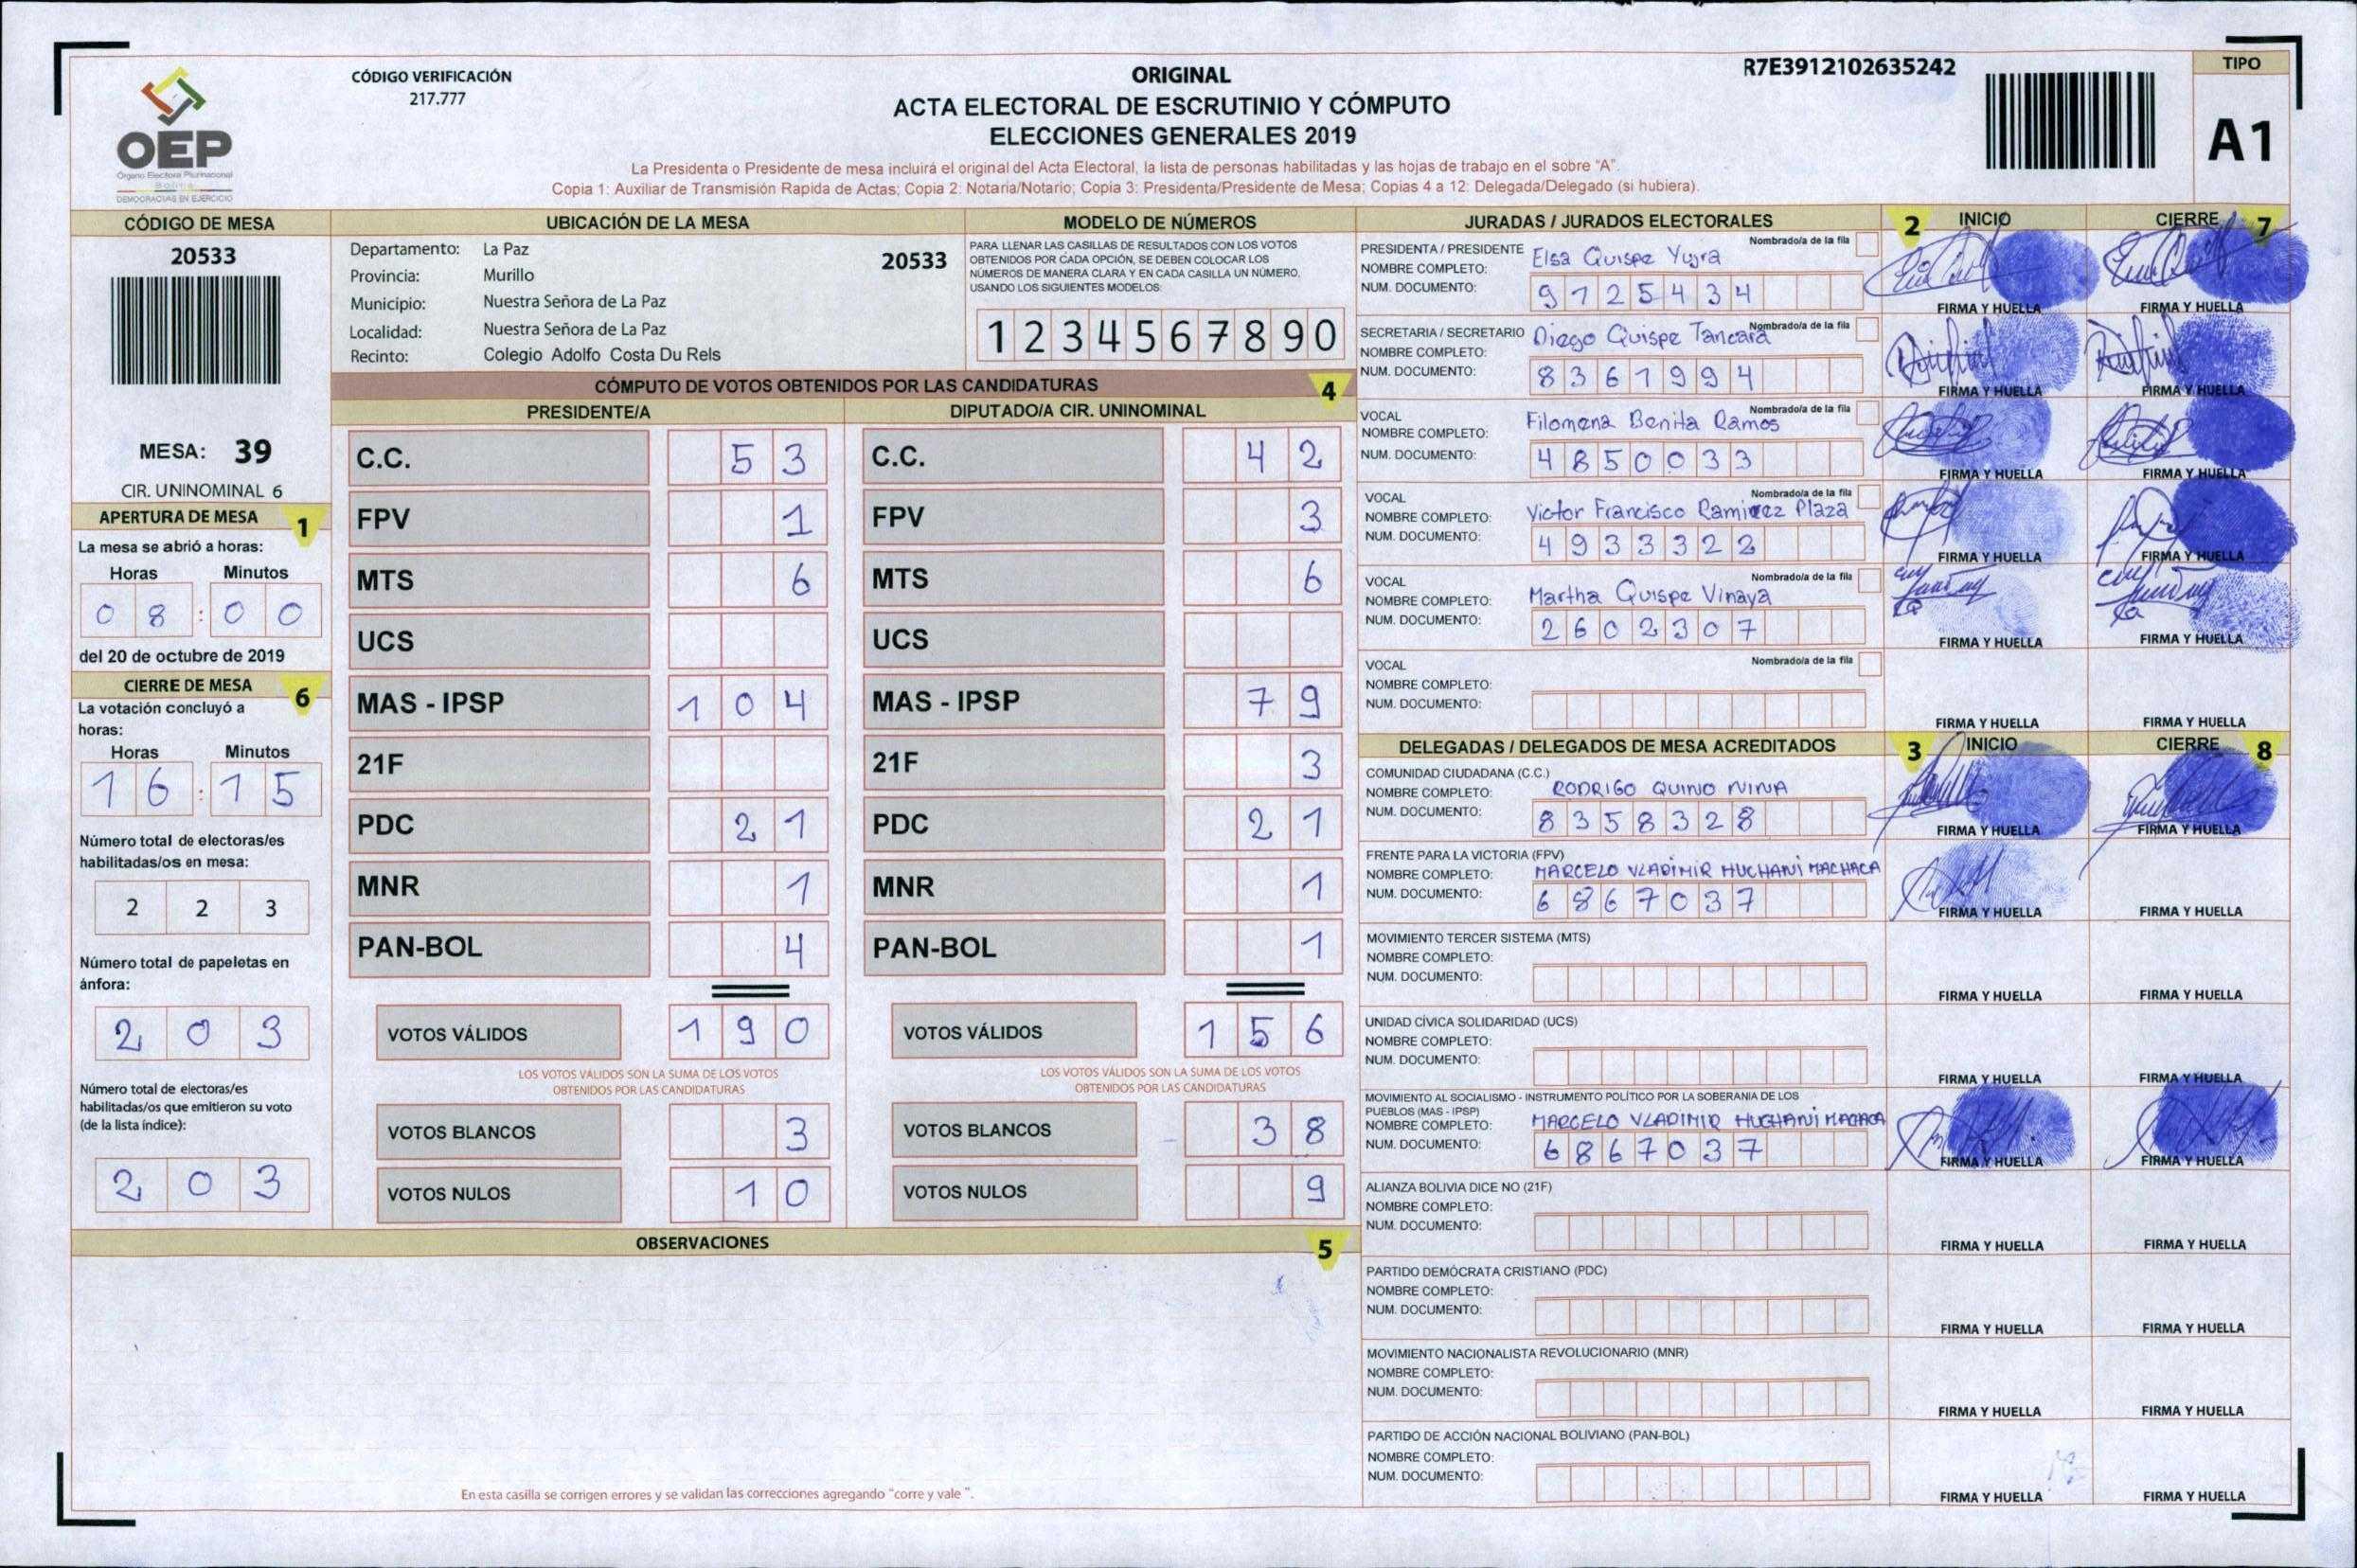 CÓDIGO VERIFICACIÓN
217.777
ORIGINAL
ACTA ELECTORAL DE ESCRUTINIO Y CÓMPUTO
ELECCIONES GENERALES 2019
La Presidenta o Presidente de mesa incluirá el original del Acta Electoral, la lista de personas habilitadas y las hojas de trabajo en el sobre "A".
Copia 1: Auxiliar de Transmisión Rapida de Actas; Copia 2: Notaria/Notario; Copia 3: Presidenta/Presidente de Mesa; Copias 4 a 12: Delegada/Delegado (si hubiera).
R7E3912102635242
TIPO
A1
OEP
Órgano Electoral Plurinacional
Bolivia
DEMOCRACIAS EN EJERCICIO
CÓDIGO DE MESA
20533
MESA: 39
CIR. UNINOMINAL 6
APERTURA DE MESA 1
La mesa se abrió a horas:
Horas Minutos
0 8 : 0 0
del 20 de octubre de 2019
CIERRE DE MESA 6
La votación concluyó a
horas:
Horas Minutos
1 6 : 1 5
Número total de electoras/es
habilitadas/os en mesa:
2 2 3
Número total de papeletas en
ánfora:
2 0 3
Número total de electoras/es
habilitadas/os que emitieron su voto
(de la lista índice):
2 0 3
UBICACIÓN DE LA MESA
Departamento: La Paz 20533
Provincia: Murillo
Municipio: Nuestra Señora de La Paz
Localidad: Nuestra Señora de La Paz
Recinto: Colegio Adolfo Costa Du Rels
MODELO DE NÚMEROS
PARA LLENAR LAS CASILLAS DE RESULTADOS CON LOS VOTOS
OBTENIDOS POR CADA OPCIÓN, SE DEBEN COLOCAR LOS
NÚMEROS DE MANERA CLARA Y EN CADA CASILLA UN NÚMERO,
USANDO LOS SIGUIENTES MODELOS:
1 2 3 4 5 6 7 8 9 0
CÓMPUTO DE VOTOS OBTENIDOS POR LAS CANDIDATURAS 4
PRESIDENTE/A
C.C. 5 3
FPV 1
MTS 6
UCS
MAS - IPSP 1 0 4
21F
PDC 2 1
MNR 1
PAN-BOL 4
VOTOS VÁLIDOS 1 9 0
LOS VOTOS VÁLIDOS SON LA SUMA DE LOS VOTOS
OBTENIDOS POR LAS CANDIDATURAS
VOTOS BLANCOS 3
VOTOS NULOS 1 0
DIPUTADO/A CIR. UNINOMINAL
C.C. 4 2
FPV 3
MTS 6
UCS
MAS - IPSP 7 9
21F 3
PDC 2 1
MNR 1
PAN-BOL 1
VOTOS VÁLIDOS 1 5 6
LOS VOTOS VÁLIDOS SON LA SUMA DE LOS VOTOS
OBTENIDOS POR LAS CANDIDATURAS
VOTOS BLANCOS 3 8
VOTOS NULOS 9
OBSERVACIONES 5
En esta casilla se corrigen errores y se validan las correcciones agregando "corre y vale ".
JURADAS / JURADOS ELECTORALES 2 INICIO CIERRE 7
PRESIDENTA / PRESIDENTE Nombrado/a de la fila
NOMBRE COMPLETO: Elsa Quispe Yujra
NUM. DOCUMENTO: 9 1 2 5 4 3 4
FIRMA Y HUELLA FIRMA Y HUELLA
SECRETARIA / SECRETARIO Nombrado/a de la fila
NOMBRE COMPLETO: Diego Quispe Tancara
NUM. DOCUMENTO: 8 3 6 1 9 9 4
FIRMA Y HUELLA FIRMA Y HUELLA
VOCAL Nombrado/a de la fila
NOMBRE COMPLETO: Filomena Benita Ramos
NUM. DOCUMENTO: 4 8 5 0 0 3 3
FIRMA Y HUELLA FIRMA Y HUELLA
VOCAL Nombrado/a de la fila
NOMBRE COMPLETO: Victor Francisco Ramirez Plaza
NUM. DOCUMENTO: 4 9 3 3 3 2 2
FIRMA Y HUELLA FIRMA Y HUELLA
VOCAL Nombrado/a de la fila
NOMBRE COMPLETO: Martha Quispe Vinaya
NUM. DOCUMENTO: 2 6 0 2 3 0 7
FIRMA Y HUELLA FIRMA Y HUELLA
VOCAL Nombrado/a de la fila
NOMBRE COMPLETO:
NUM. DOCUMENTO:
FIRMA Y HUELLA FIRMA Y HUELLA
DELEGADAS / DELEGADOS DE MESA ACREDITADOS 3 INICIO CIERRE 8
COMUNIDAD CIUDADANA (C.C.)
NOMBRE COMPLETO: RODRIGO QUINO NINA
NUM. DOCUMENTO: 8 3 5 8 3 2 8
FIRMA Y HUELLA FIRMA Y HUELLA
FRENTE PARA LA VICTORIA (FPV)
NOMBRE COMPLETO: MARCELO VLADIMIR HUCHANI MACHACA
NUM. DOCUMENTO: 6 8 6 7 0 3 7
FIRMA Y HUELLA FIRMA Y HUELLA
MOVIMIENTO TERCER SISTEMA (MTS)
NOMBRE COMPLETO:
NUM. DOCUMENTO:
FIRMA Y HUELLA FIRMA Y HUELLA
UNIDAD CÍVICA SOLIDARIDAD (UCS)
NOMBRE COMPLETO:
NUM. DOCUMENTO:
FIRMA Y HUELLA FIRMA Y HUELLA
MOVIMIENTO AL SOCIALISMO - INSTRUMENTO POLÍTICO POR LA SOBERANIA DE LOS
PUEBLOS (MAS - IPSP)
NOMBRE COMPLETO: MARCELO VLADIMIR HUCHANI MACHACA
NUM. DOCUMENTO: 6 8 6 7 0 3 7
FIRMA Y HUELLA FIRMA Y HUELLA
ALIANZA BOLIVIA DICE NO (21F)
NOMBRE COMPLETO:
NUM. DOCUMENTO:
FIRMA Y HUELLA FIRMA Y HUELLA
PARTIDO DEMÓCRATA CRISTIANO (PDC)
NOMBRE COMPLETO:
NUM. DOCUMENTO:
FIRMA Y HUELLA FIRMA Y HUELLA
MOVIMIENTO NACIONALISTA REVOLUCIONARIO (MNR)
NOMBRE COMPLETO:
NUM. DOCUMENTO:
FIRMA Y HUELLA FIRMA Y HUELLA
PARTIDO DE ACCIÓN NACIONAL BOLIVIANO (PAN-BOL)
NOMBRE COMPLETO:
NUM. DOCUMENTO:
FIRMA Y HUELLA FIRMA Y HUELLA